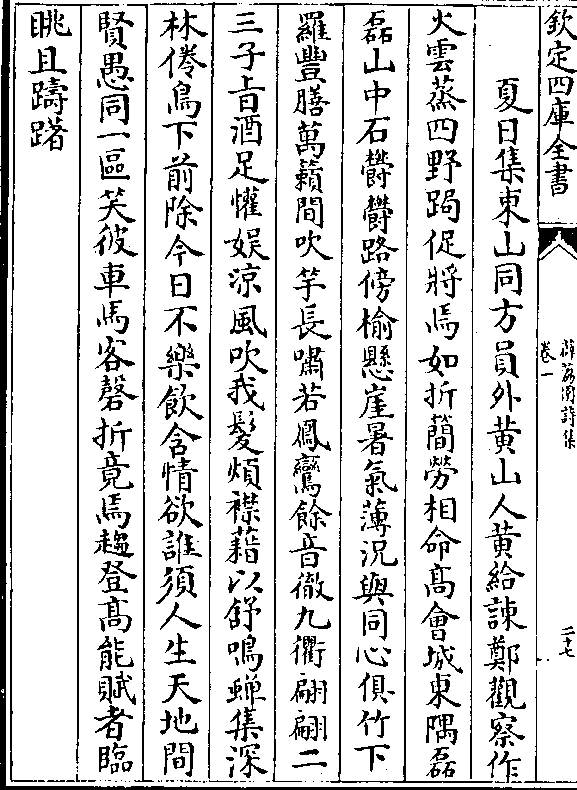 欽定四庫全書
薜荔園詩集
卷一
二十七
夏日集東山同方員外黄山人黄給諫鄭觀察作
火雲蒸四野跼促將焉如折簡勞相命高會城東隅磊
磊山中石欝欝路傍榆懸崖暑氣薄況與同心俱竹下
羅豐膳萬籟間吹竽長嘯若鳳鸞餘音徹九衢翩翩二
三子㫖酒足懽娛涼風吹我髮煩襟藉以舒鳴蟬集深
林倦鳥下前除今日不樂飲含情欲誰須人生天地間
賢愚同一區笑彼車馬客磬折竟焉趨登高能賦者臨
眺且躊躇